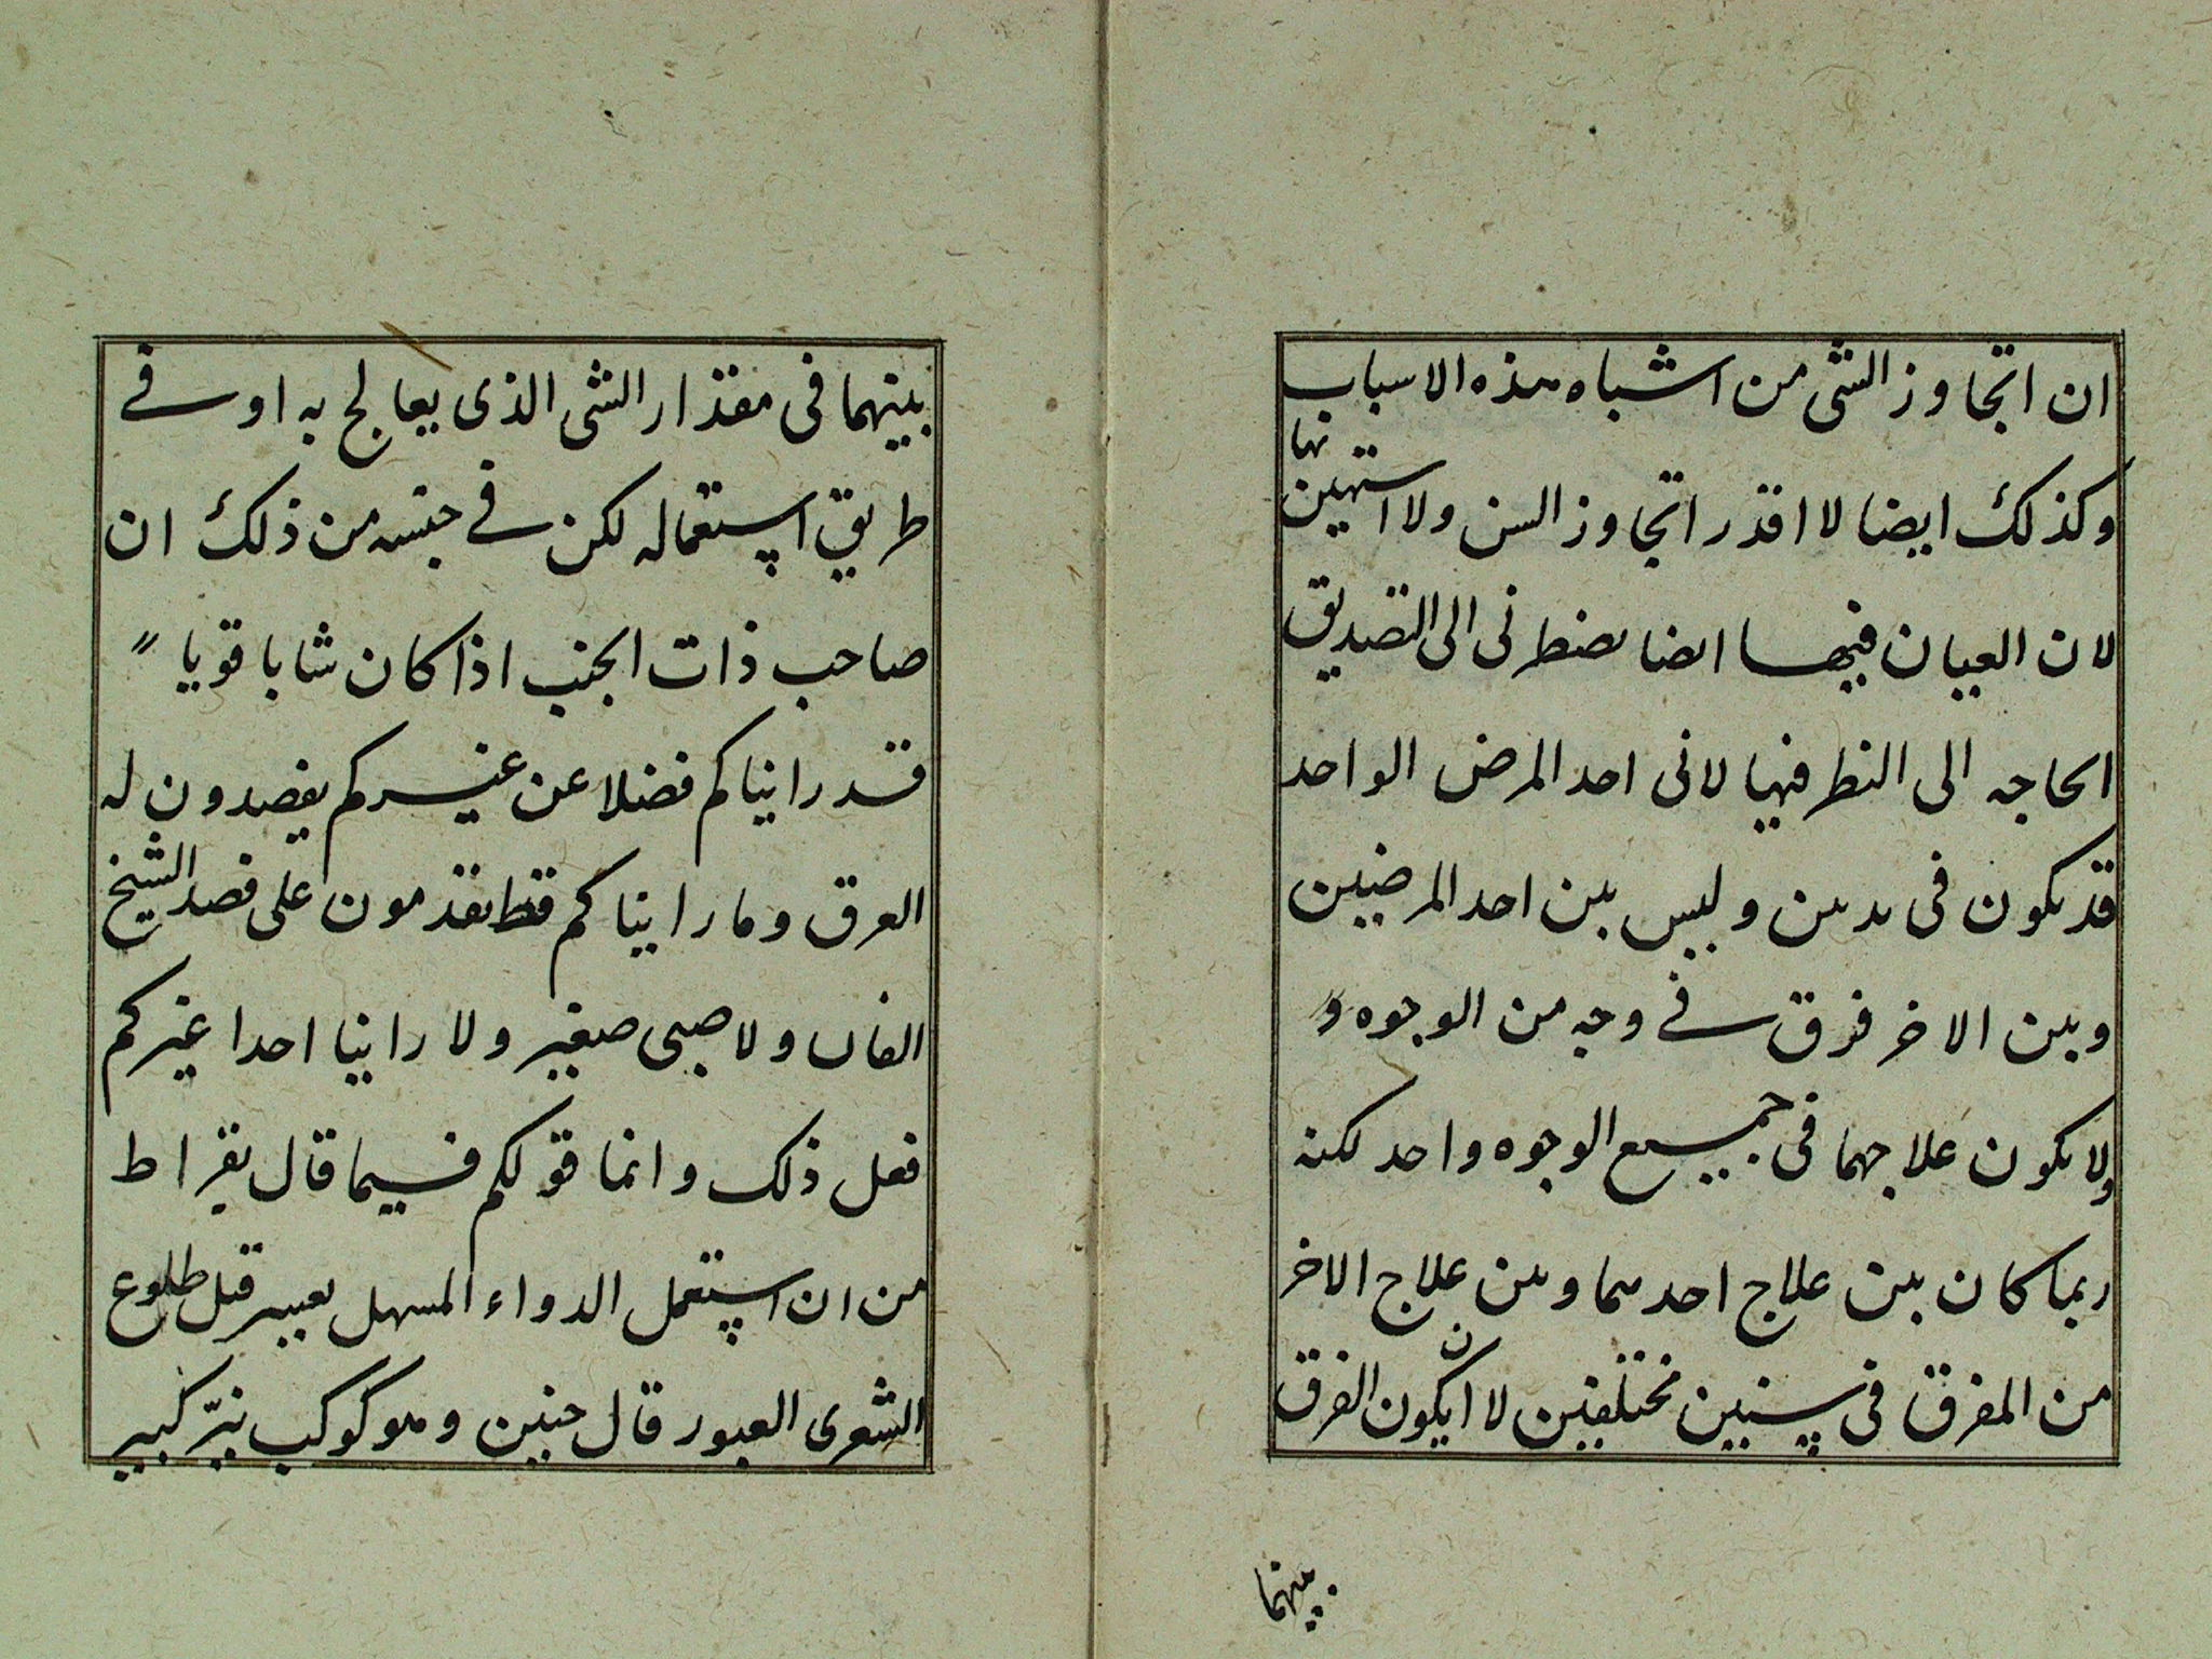 ان اتجاوز الشى من اشباه هذه الاسباب
وكذلك ايضا لا اقدر اتجاوز السن ولا استهين بها
لان العيان فيها ايضا يضطرنى الى التصديق
الحاجه الى النظر فيها لانى احد المرض الواحد
قد يكون فى بدنين وليس بين احد المرضيين
وبين الاخر فرق فى وجه من الوجوه و
ولا يكون علاجهما فى جميع الوجوه واحد لكنه
ربما كان بين علاج احدهما وبين علاج الاخر
من المفرق فى سنين مختلفين لا ان يكون الفرق
بينهما
بينهما فى مقدار الشى الذى يعالج به او فى
طريق استعماله لكن فى جنسه من ذلك ان
صاحب ذات الجنب اذا كان شابا قويا
قد رايناكم فضلا عن غيركم يفصدون له
العرق وما رايناكم قط تقدمون على فصد الشيخ
الفان ولا صبى صغير ولا راينا احدا غيركم
فعل ذلك وانما قولكم فيما قال بقراط
من ان استعمل الدواء المسهل بعسر قبل طلوع
الشعرى العبور قال حنين وهو كوكب نيّر كبير